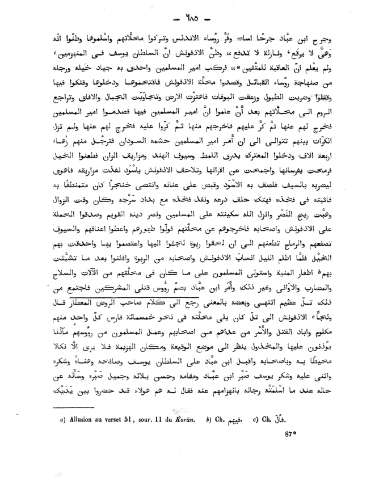 — ٦٨٥ —
وجرح ابن عبّاد جرحا اساء وفرّ رؤساء الاندلس وتركوا محلّاتهم واسلموها وظنّوا انّه
وَهْىٌ لا يرقع ونازلة لا تُدفع وظنّ الاذفونش انّ السلطان يوسف فى المنهزمين
ولم يعلم انّ العاقبة للمتّقين فركب امير المسلمين واحدق به جماد خيله ورجاله
من صنهاجة رؤساء القبائل وقصدوا محلّة الاذفونش فاقتحموها ودخلوها وفتكوا فيها
وقتلوا وضربت الطبول وزعقت البوقات فاهتزّت الارض وتجاوبت الجبال والآفاق وتراجع
الروم الى محلّاتهم بعد أنْ علموا انّ امير المسلمين فيها فصدموا امير المسلمين
فخرج لهم عنها ثمّ كرّ عليهم فاخرجهم منها ثمّ كرّوا عليه فخرج لهم عنها ولم تزل
الكرّات بينهم تتوالى الى ان أمر امير المسلمين حشمه السودان فترجّل منهم زُهاء
اربعة الاف ودخلوا المعترك بدرق اللمط وسيوف الهند ومزاريق الزان فطعنوا الخيل
فرمحت بفرسانها واجمحت عن اقرانها وتلاحف الاذفونش باسود نفدت مزاريقه فاهوى
ليضربه بالسيف فلصف به الاسود وقبض على عنانه وانتضى خنجرًا كان متمنطقًا به
فاثبته فى فخذه فهتك حلف درعه ونفذ فخذه مع بداد سرجه وكان وقت الزوال
وهبّت ريح النصر وانزل الله سكينته على المسلمين ونصر دينه القويم وصدقوا الحملة
على الاذفونش واصحابه فاخرجوهم عن محلّتهم فولّوا ظهورهم واعطوا اعناقهم والسيوف
تصفعهم والرماح تطعنهم الى ان لحقوا ربوة لجؤوا اليها واعتصموا بها واحدقت بهم
الخيل فلمّا اظلم الليل انساب الاذفونش واصحابه من الربوة وافلتوا بعد ما تشبّثت
بهم اظفار المنية واستولى المسلمون على ما كان فى محلّتهم من الآلات والسلاح
والمضارب والأوانى وغير ذلك وأمر ابن عبّاد بضمّ رؤوس قتلى المشركين فاجتمع من
ذلك تلّ عظيم انتهى وبعضه بالمعنى رجع الى كلام صاحب الروض المعطار قال
ولجأ الاذفونش الى تلّ كان يلى محلّته فى نحو خمسمائة فارس كلّ واحد منهم
مكلوم واباد القتل والأسر من عداهم من اصحابهم وعمل المسلمون من رؤوسهم مآذنا
يؤذّنون عليها والمخذول ينظر الى موضع الوقيعة ومكان الهزيمة فلا يرى الّا نكالا
محيطًا به وباصحابه واقبل ابن عبّاد على السلطان يوسف وصافحه وهنّأه وشكره
واثنى عليه وشكر يوسف صبر ابن عبّاد ومقامه وحسن بلائه وجميل صبره وسأله عن
حاله عند ما اسلمته رجاله بانهزامهم عنه فقال له هم هؤلاء قد حضروا بين يديك
a) Allusion au verset 51, sour. 11 du Korân. b) Ch. فيهم. c) Ch. قال.
87*